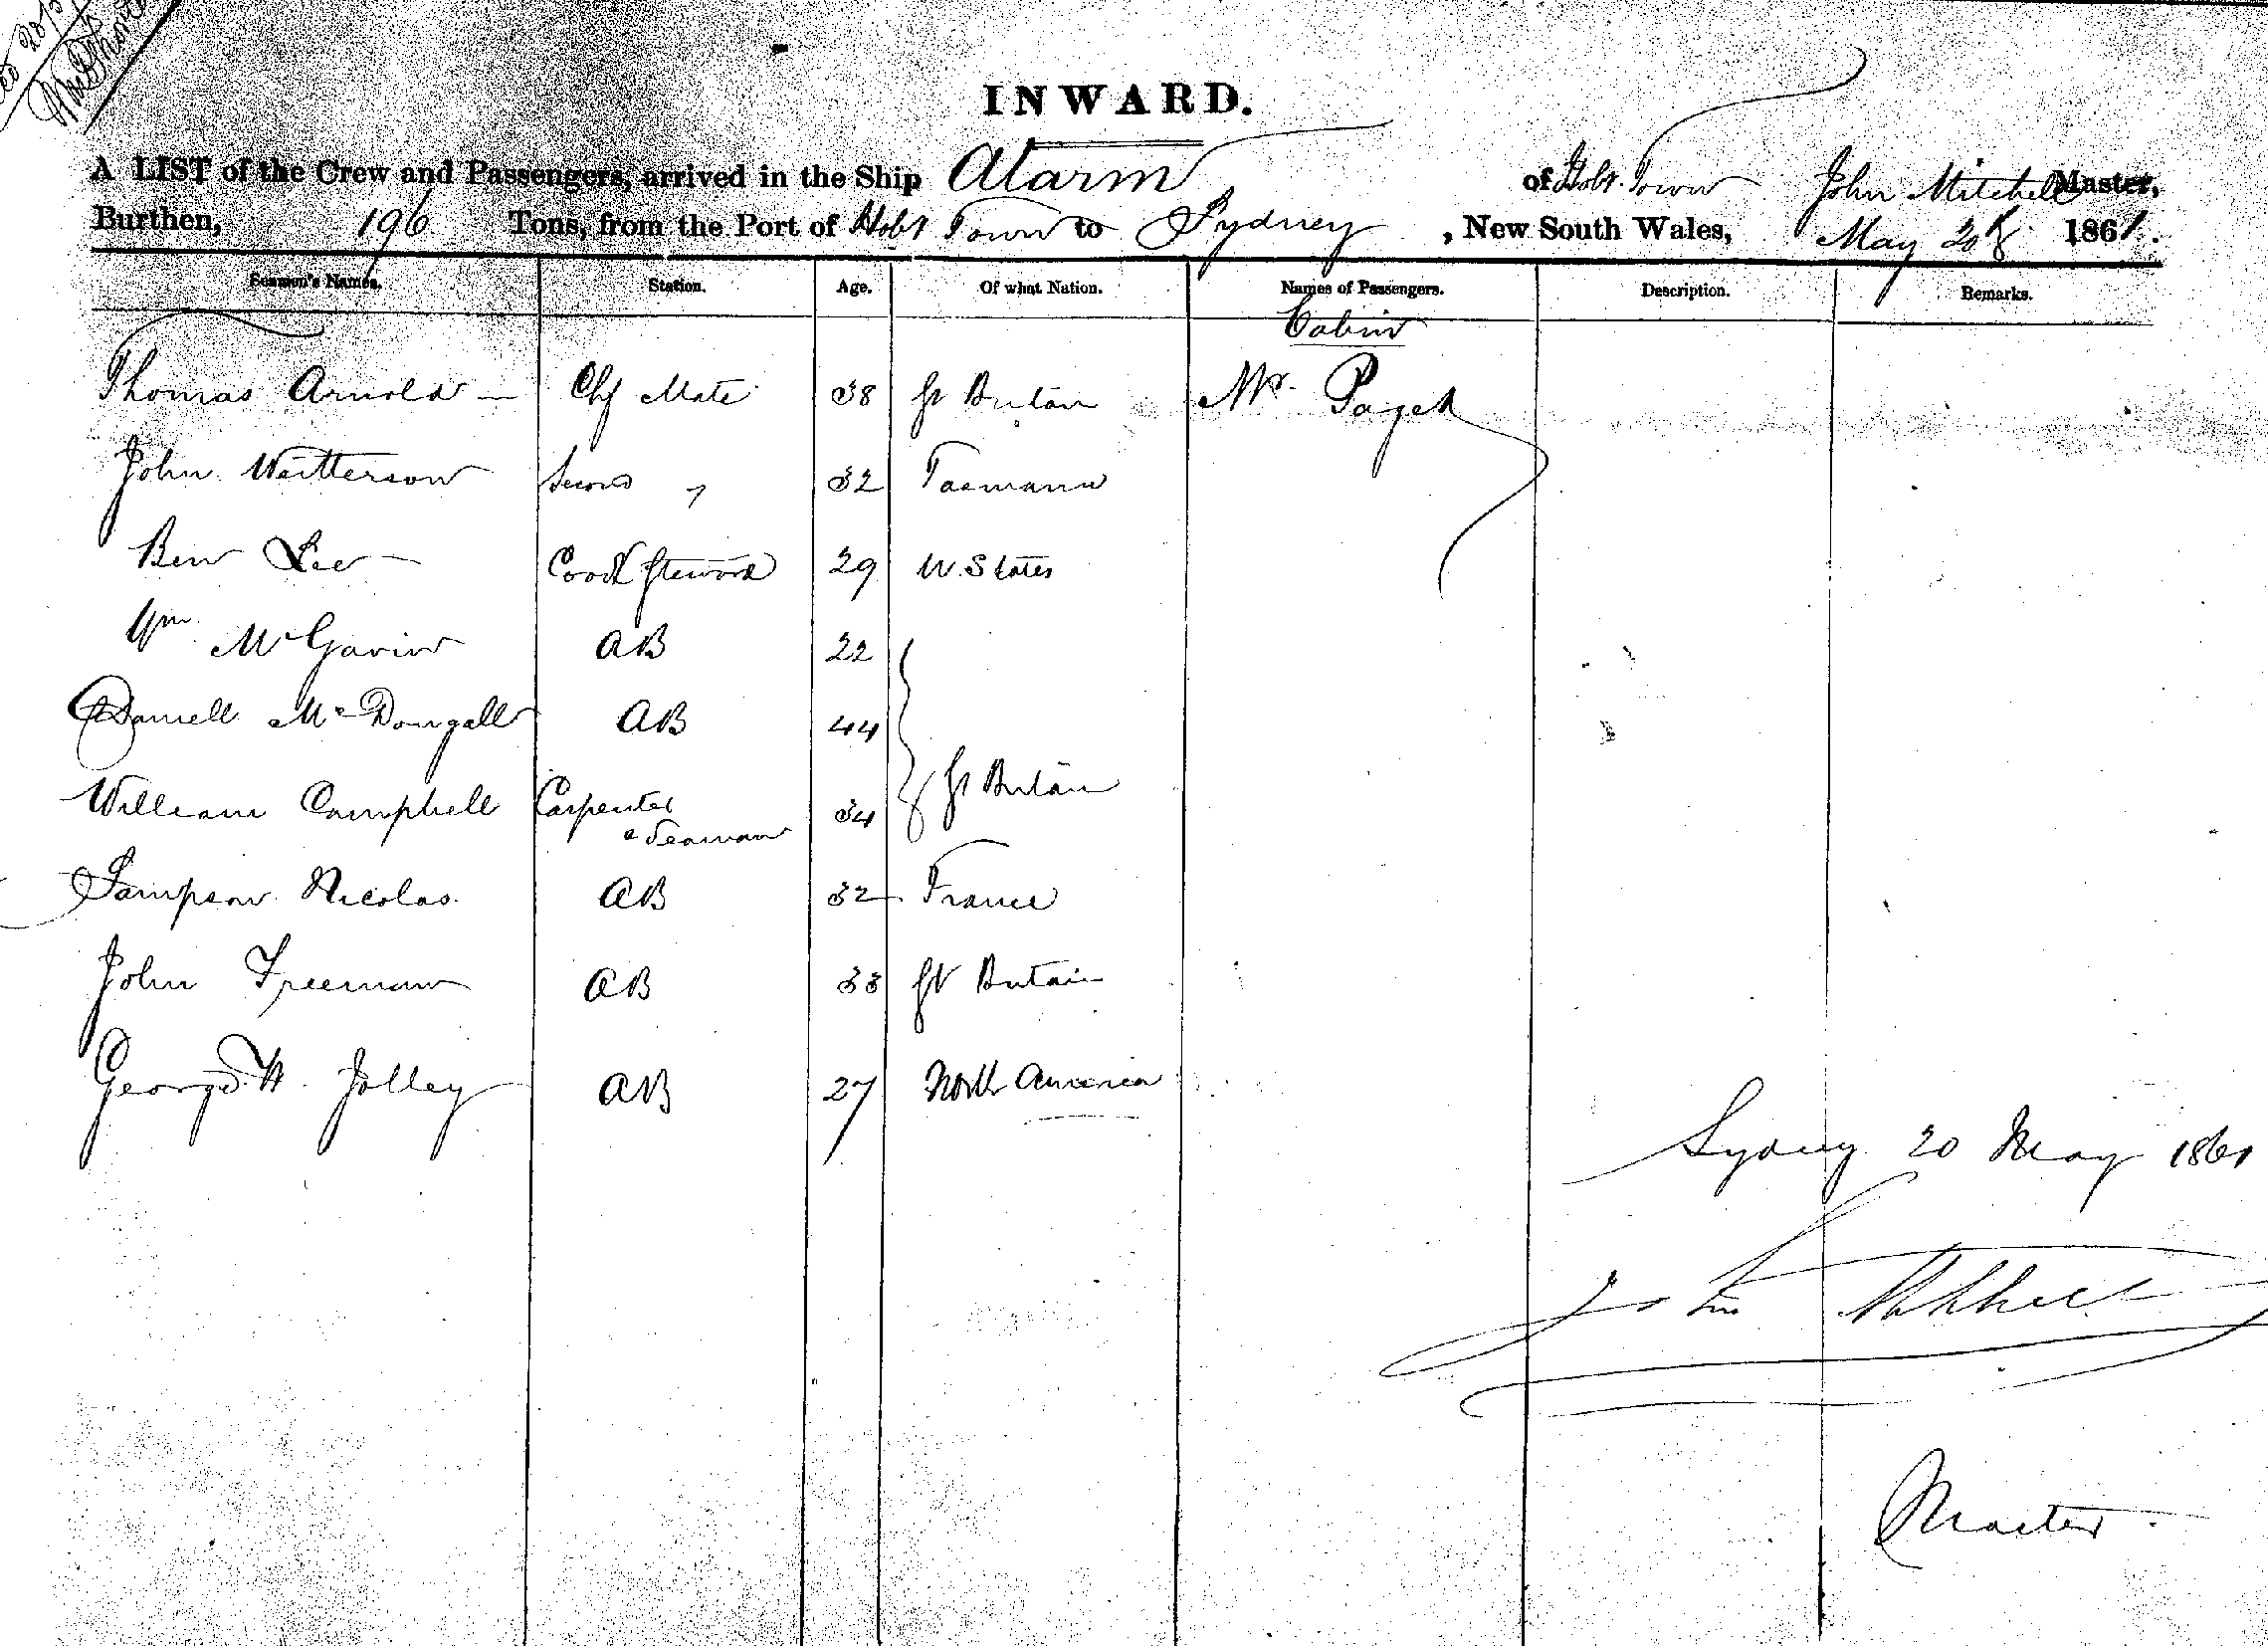 INWARD.
A LIST of the Crew and Passengers, arrived in the Ship Alarm of Hobt. Town John Mitchell Master,
Burthen, 196 Tons, from the Port of Hobt Town to Sydney, New South Wales, May 20th 1861.
Seamen's Names. Station. Age. Of what Nation. Names of Passengers. Description. Remarks.
Cabin
Thomas Arnold Chf Mate 38 Gt Britain Mr. Paget
John Watterson Second " 32 Tasmania
Ben Lee Cook Steward 29 U. States
Wm McGavin AB 22
Daniell McDougall AB 44
William Campbell Carpenter 34 Gt Britain
& Seaman
Sampson Nicolas AB 32 France
John Freeman AB 33 Gt Britain
George H. Jolley AB 27 North America
Sydney 20 May 1861
John Mitchell
Master.